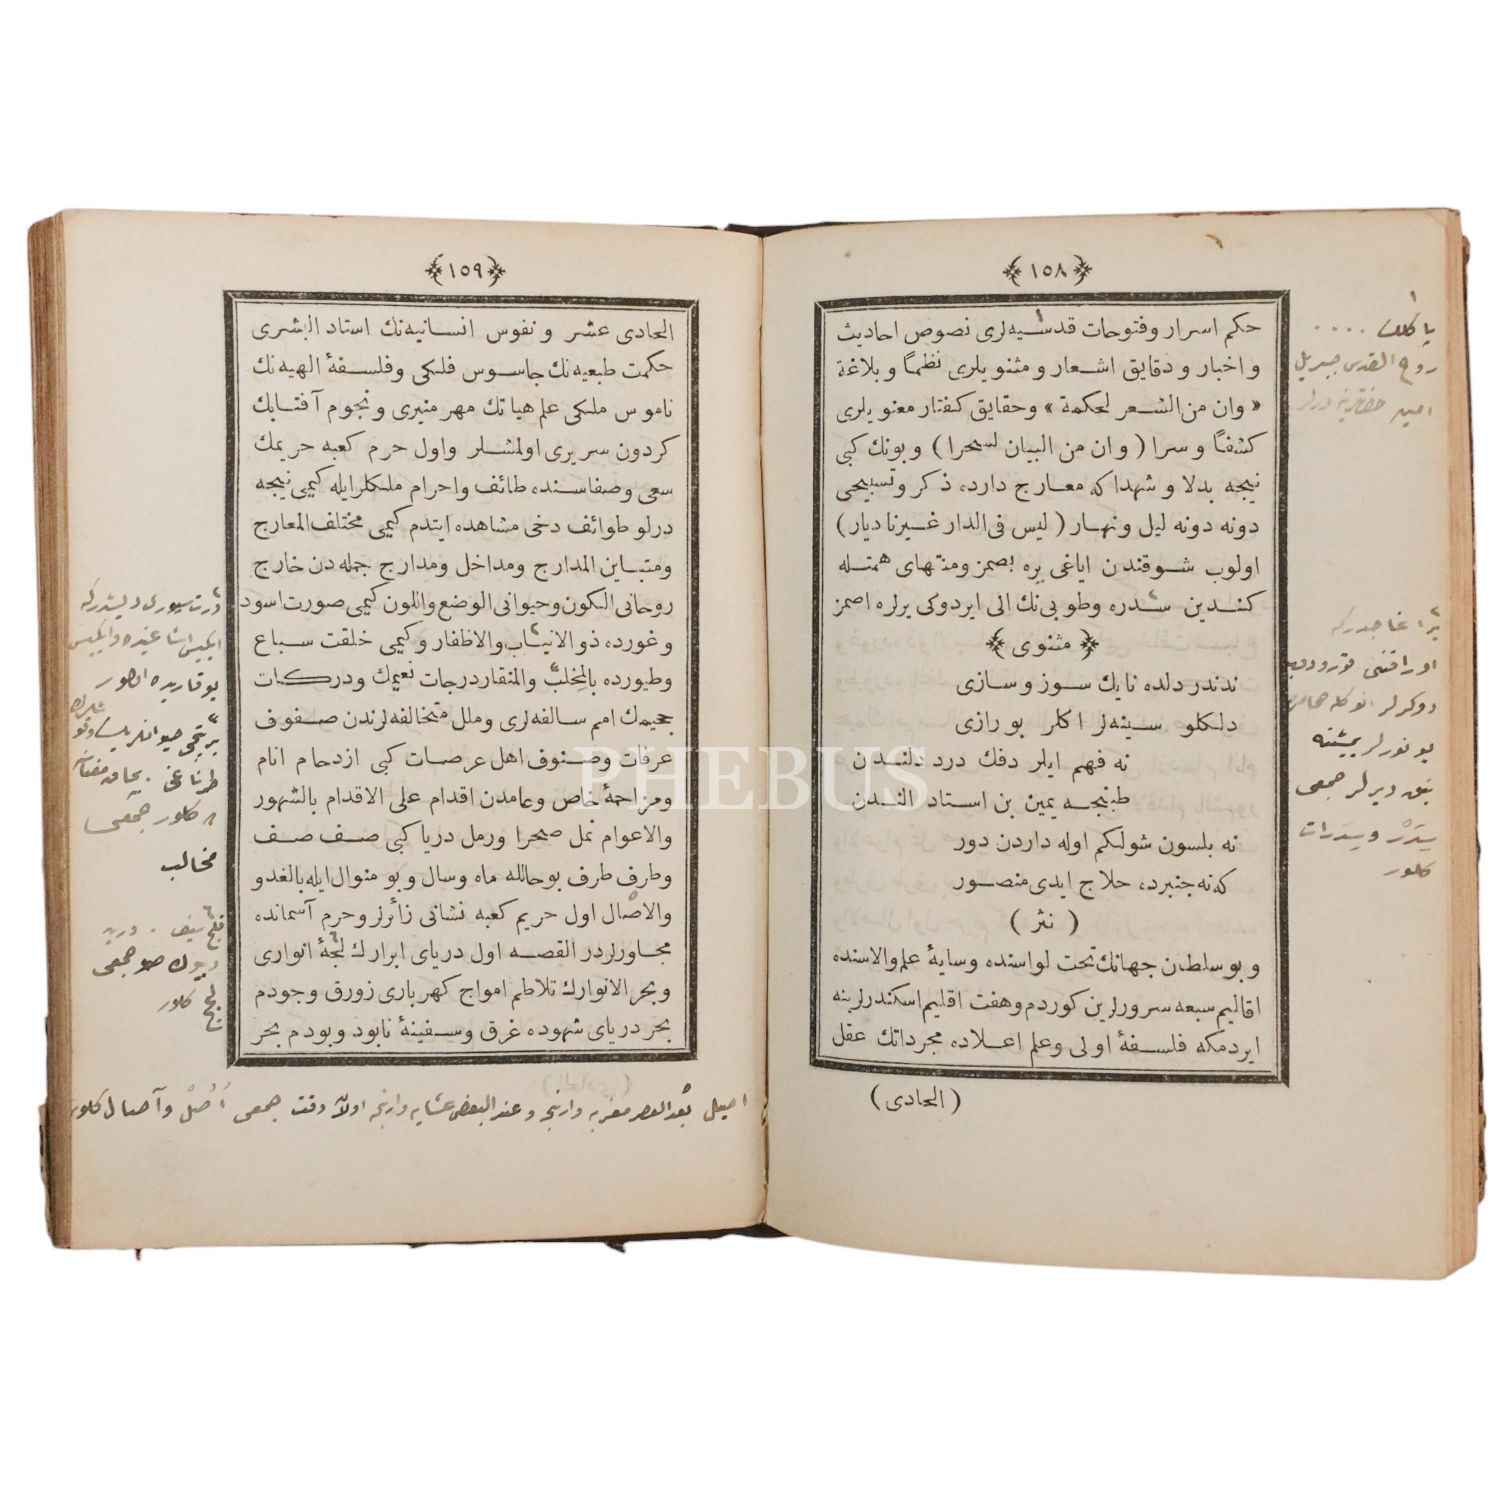 ﴿١٥٨﴾
حكم اسرار وفتوحات قدسيه‌لرى نصوص احاديث
واخبار ودقايق اشعار ومثنويلرى نظماً وبلاغة
« وان من الشعر لحكمة » وحقايق كفتار معنويلرى
كشفاً وسرا ( وان من البيان لسحرا ) وبونك كبى
نيجه بدلا وشهدا كه معارج داره ذكر وتسبيحى
دونه دونه ليل ونهار ( ليس فى الدار غيرنا ديار )
اولوب شوقندن اياغى يره بصمز ومنتهاى همتله
كندين سدره وطوبى‌نك الى ايردوكى يرلره اصمز
﴿ مثنوى ﴾
ندندر دلده نايك سوز وسازى
دلكلو سينه‌لر اكلر بو رازى
نه فهم ايلر دفك درد دلندن
طبنجه يمين بن استاد الندن
نه بلسون شولكم اوله داردن دور
كه نه جنبرده حلاج ايدى منصور
( نثر )
وبو سلطان جهانك تحت لواسنده وسايۀ علم والاسنده
اقاليم سبعه سرورلرين كوردم وهفت اقليم اسكندرلرينه
ايردمكه فلسفۀ اولى وعلم اعلاده مجرداتك عقل
( الحادى )
روح القدس جبريل
امين حضرتلرينه ديرلر
﴿١٥٩﴾
الحادى عشر ونفوس انسانيه‌نك استاد البشرى
حكمت طبعيه‌نك جاسوس فلكى وفلسفۀ الهيه‌نك
ناموس ملكى علم هياتك مهر منيرى ونجوم آفتابك
كردون سريرى اولمشلر واول حرم كعبه حريمك
سعى وصفاسنده طائف واحرام ملكلرايله كيمى نيجه
درلو طوائف دخى مشاهده ايتدم كيمى مختلف المعارج
ومتباين المدارج ومداخل ومدارج جمله‌دن خارج
روحانى الكون وحيوانى الوضع واللون كيمى صورت اسود
وغورده ذو الانياب والاظفار وكيمى خلقت سباع
وطيورده بالمخلب والمنقار درجات نعيمك ودركات
جحيمك امم سالفه‌لرى وملل متخالفه‌لرندن صفوف
عرفات وصنوف اهل عرصات كبى ازدحام انام
ومزاحمۀ خاص وعامدن اقدام على الاقدام بالشهور
والاعوام نمل صحرا ورمل دريا كبى صف صف
وطرف طرف بوحالله ماه وسال وبو منوال ايله بالغدو
والاصال اول حريم كعبه نشانى زائرلر وحرم آسمانده
مجاورلردر القصه اول درياى ابرارك لجۀ انوارى
وبحر الانوارك تلاطم امواج كهربارى زورق وجودم
بحر درياى شهوده غرق وسفينۀ نابود وبودم بحر
مخالب
اصيل بعد العصر مغربه وارنجه وعند البعض عشايه وارنجه اولان وقت جمعى اُصُل وآصال كلور
PHEBUS